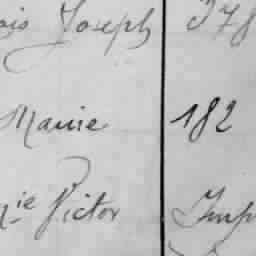 ois Joseph 378
Marie 182
ie Victor Imp